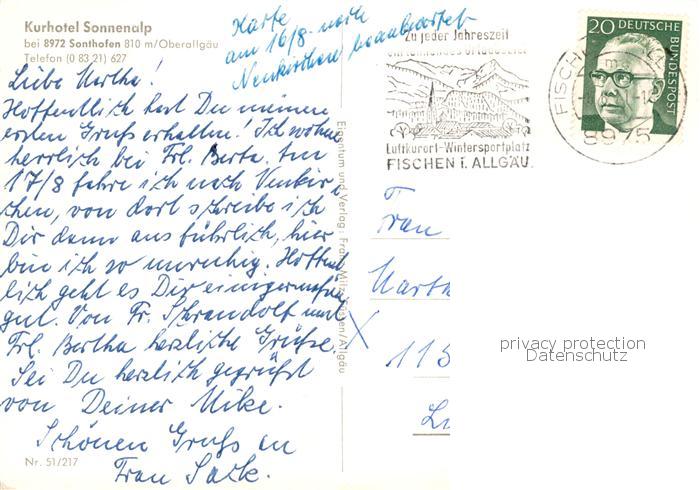 Kurhotel Sonnenalp
bei 8972 Sonthofen 810 m/Oberallgäu
Telefon (0 83 21) 627
Karte
am 16/8. nach
Neukirchen beantwortet
Liebe Martha!
Hoffentlich hast Du meinen
ersten Gruß erhalten! Ich wohne
herrlich bei Frl. Berta. Am
17/8 fahre ich nach Neukir
chen, von dort schreibe ich
Dir dann ausführlich, hier
bin ich so unruhig. Hoffent
lich geht es Dir einigermaßen
gut. Von Fr. Schrandolf und
Frl. Bertha herzliche Grüße.
Sei Du herzlich gegrüßt
von Deiner Mike.
Schönen Gruß an
Frau Sack.
Nr. 51/217
Eigentum und Verlag: Franz Milz, /Allgäu
Zu jeder Jahreszeit
Luftkurort-Wintersportplatz
FISCHEN i. ALLGÄU
FISCH
8975
20 DEUTSCHE
BUNDESPOST
Frau
Marth
113
privacy protection
Datenschutz